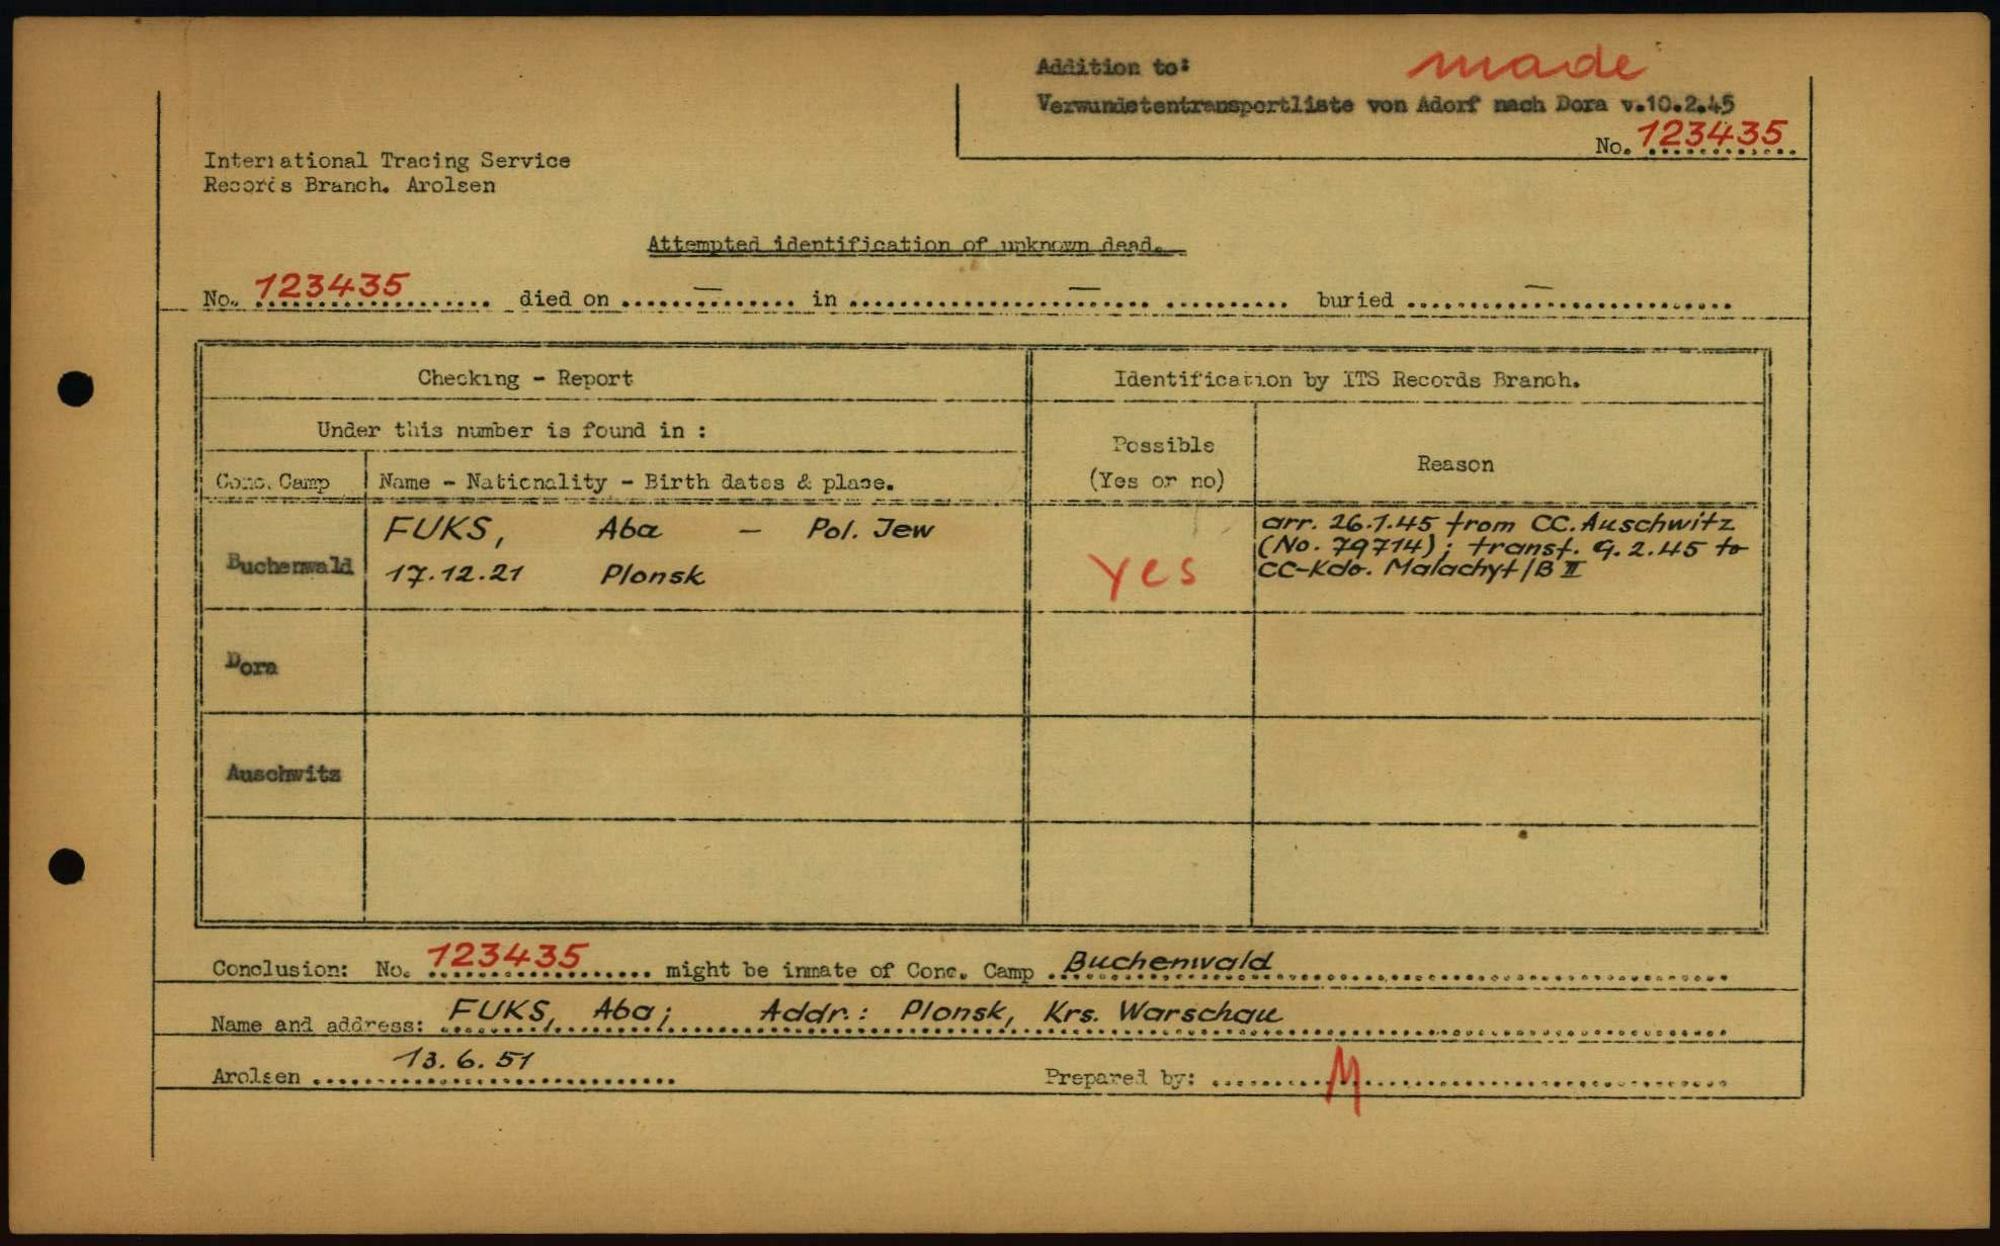 Addition to: made
Verwundetentransportliste von Adorf nach Dora v.10.2.45
No. 123435
International Tracing Service
Records Branch. Arolsen
Attempted identification of unknown dead.
No. 123435 died on — in — buried —
Checking - Report
Identification by ITS Records Branch.
Under this number is found in :
Possible
(Yes or no)
Reason
Conc. Camp
Name - Nationality - Birth dates & place.
Buchenwald
FUKS, Aba — Pol. Jew
17.12.21 Plonsk
yes
arr. 26.1.45 from CC. Auschwitz
(No. 79714); transf. 9.2.45 to
CC-Kdo. Malachyt/B II
Dora
Auschwitz
Conclusion: No. 123435 might be inmate of Conc. Camp Buchenwald
Name and address: FUKS, Aba; Addr.: Plonsk, Krs. Warschau
Arolsen 13.6.51
Prepared by: M